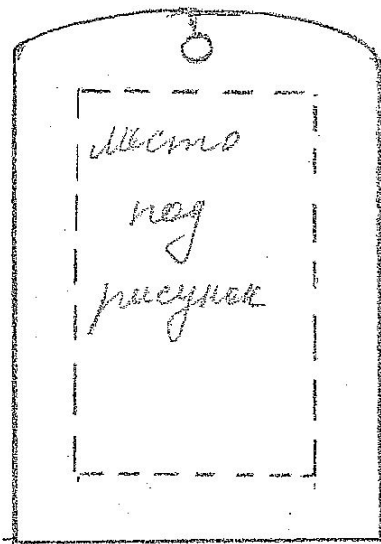 место
под
рисунок